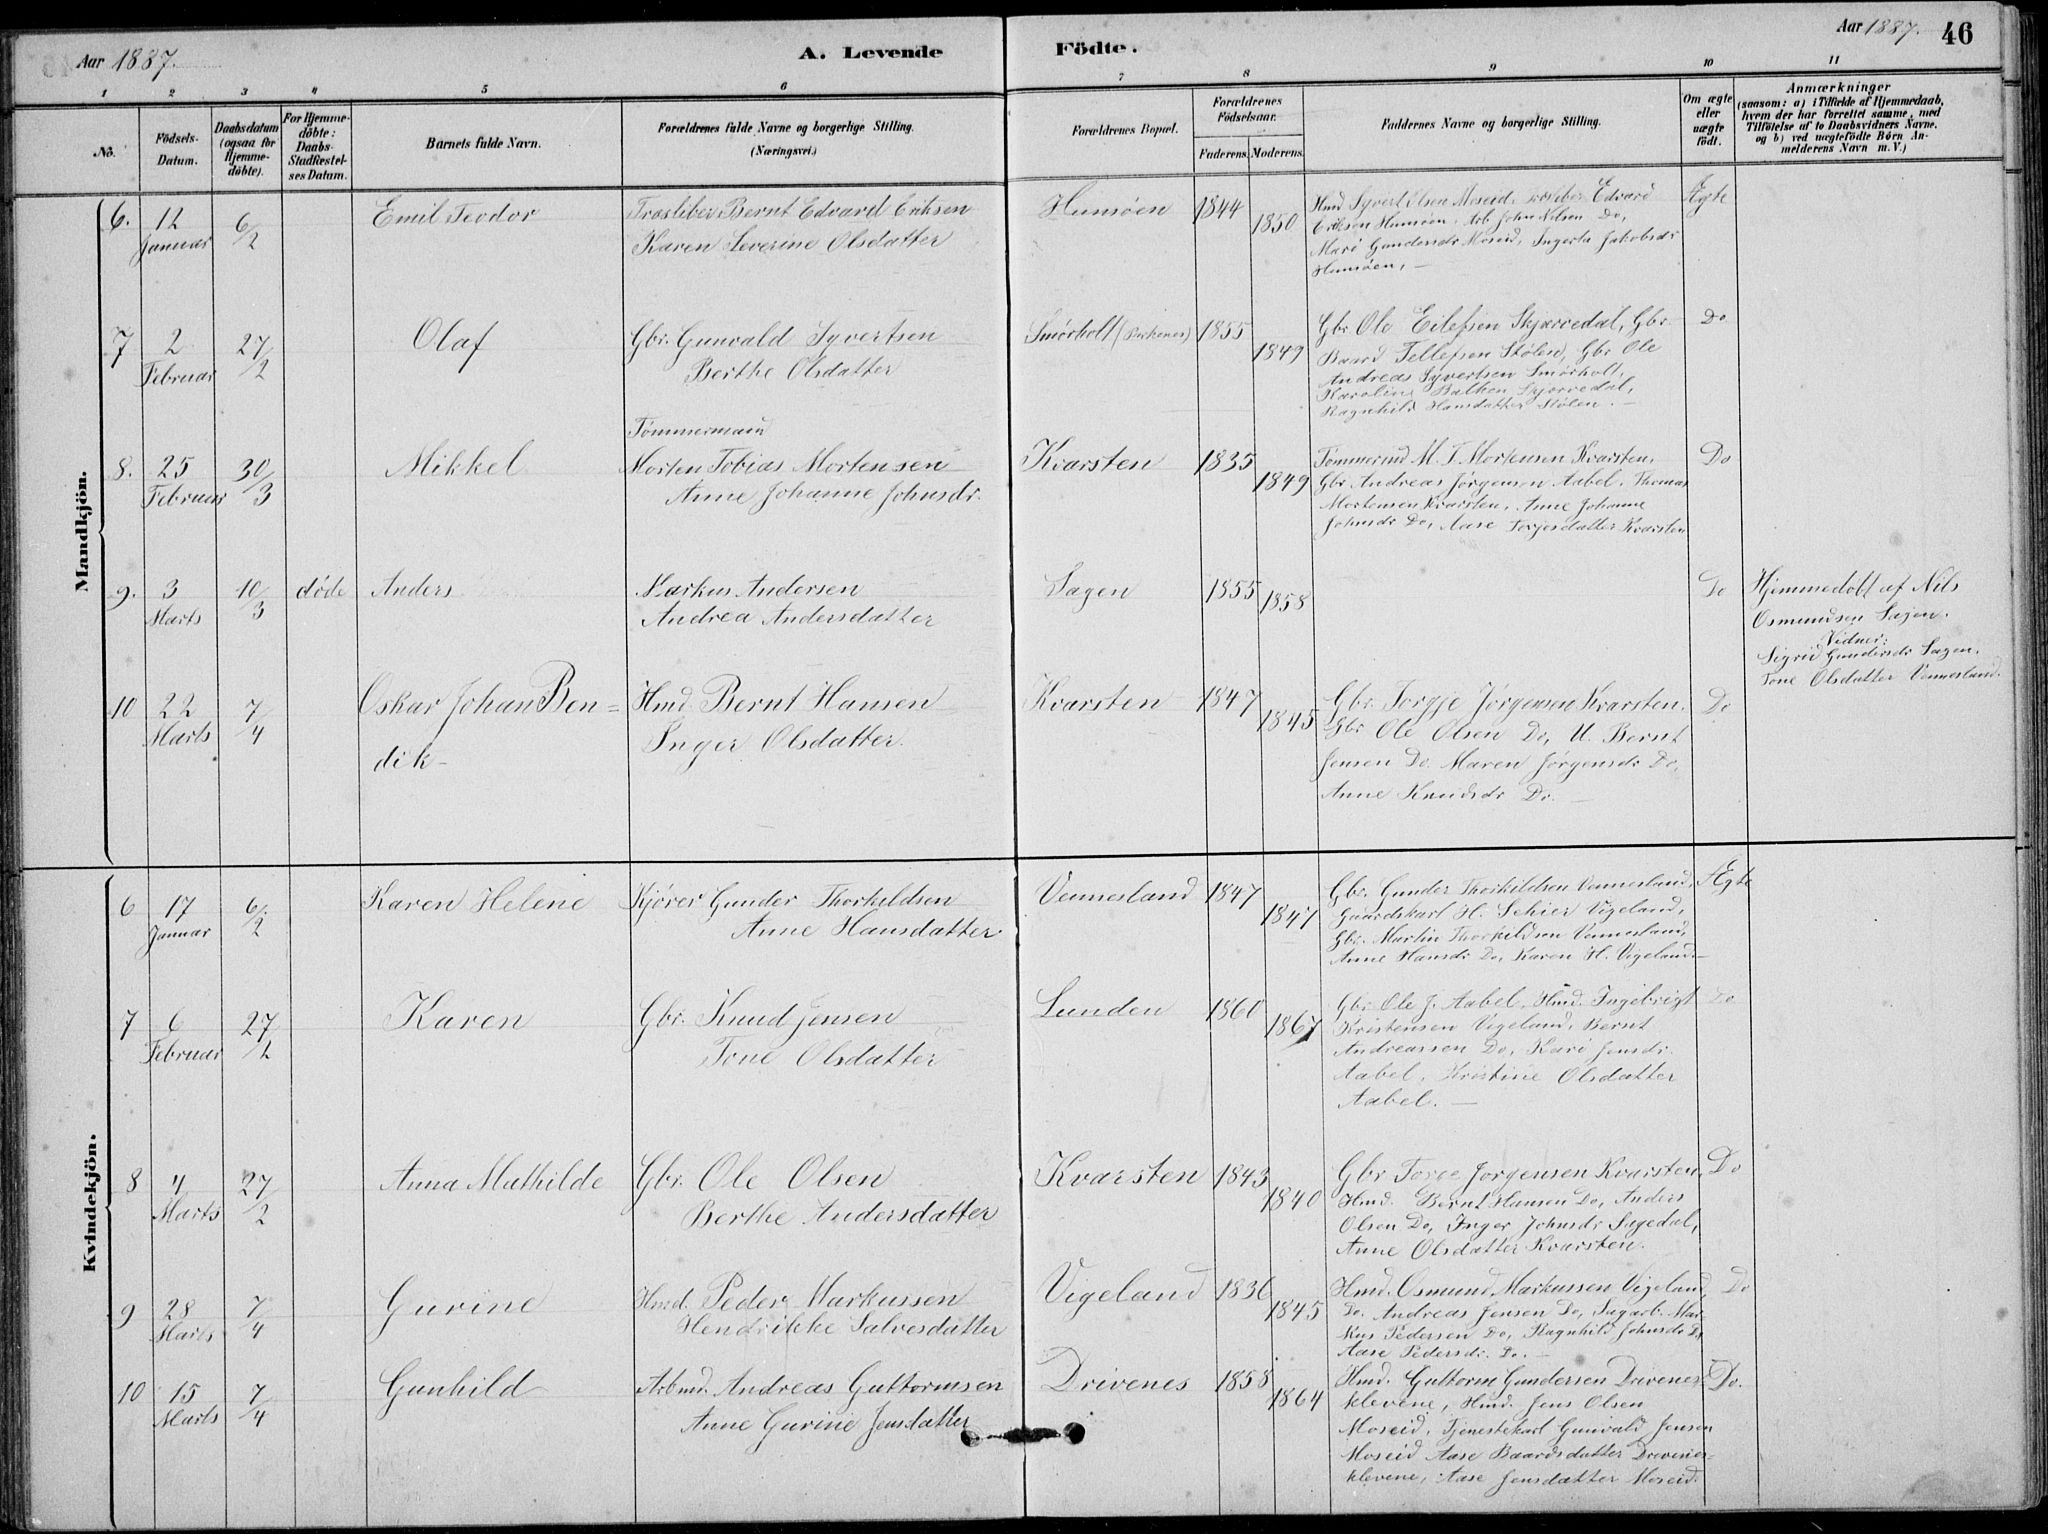 Aar 1887.
A. Levende Födte.
Aar 1887.
46
1 2 3 4 5 6 7 8 9 10 11
No.
Födsels-Datum.
Daabsdatum (ogsaa for Hjemmedöbte).
For Hjemmedöbte: Daabs-Stadfestelses Datum.
Barnets fulde Navn.
Forældrenes fulde Navne og borgerlige Stilling.
(Næringsvei.)
Forældrenes Bopæl.
Forældrenes Födselsaar.
Faderens. Moderens.
Faddernes Navne og borgerlige Stilling.
Om ægte eller uægte födt.
Anmærkninger
(saasom: a) i Tilfælde af Hjemmedaab, hvem der har forrettet samme, med Tilföielse af to Daabsvidners Navne, og b) ved uægtefödte Börn Anmelderens Navn m. V.)
Mandkjön.
6. 12 Januar 6/2
Emil Teodor
Træsliber Bernt Edvard Eriksen
Karen Severine Olsdatter
Hunsøen 1844 1850
Hmd Syvert Olsen Moseid, Træsliber Edvard
Eriksen Hunsøen, Arb. John Nilsen Do,
Mari Gundersdr Moseid, Ingerta Jakobsdr
Hunsøen. —
Ægte
7 2 Februar 27/2
Olaf
Gbr. Gunvald Syvertsen
Berthe Olsdatter
Smørholt (Birkenes) 1855 1849
Gbr Ole Eilefsen Skjærvedal, Gbr.
Baard Tellefsen Stølen, Gbr Ole
Andreas Syvertsen Smørholt,
Karoline Skjærvedal,
Ragnhild Hansdatter Stølen. —
Do
8. 25 Februar 30/3
Mikkel
Tømmermand
Morten Tobias Mortensen
Anne Johanne Johnsdr.
Kvarsten 1835 1849
Tømmermd M. T. Mortensen Kvarsten,
Gbr. Andreas Jørgensen Aabel, Thomas
Mortensen Kvarsten, Anne Johanne
Johnsdr Do, Aase Torjesdatter Kvarsten
Do
9. 3 Marts 10/3 døde
Anders
Markus Andersen
Andrea Andersdatter
Sagen 1855 1858
Do
Hjemmedøbt af Nils
Osmundsen Sagen.
Vidner:
Sigrid Gundersdr Sagen.
Tone Olsdatter Vennesland.
10 22 Marts 7/4
Oskar Johan Ben=
dik
Hmd. Bernt Hansen
Inger Olsdatter.
Kvarsten 1847 1845
Gbr. Torgje Jørgensen Kvarsten.
Gbr Ole Olsen Do, U. Bernt
Jensen Do. Maren Jørgensdr Do,
Anne Knudsdr Do. —
Do
Kvindekjön.
6 17 Januar 6/2
Karen Helene
Kjører Gunder Thorkildsen
Anne Hansdatter
Vennesland 1847 1847
Gbr. Gunder Thorkildsen Vennesland,
Gaardskarl H. Schier Vigeland,
Gbr. Martin Thorkildsen Vennesland,
Anne Hansdr Do, Karen H. Vigeland. —
Ægte
7 6 Februar 27/2
Karen
Gbr. Knud Jensen
Tone Olsdatter
Lunden 1860 1867
Gbr. Ole J. Aabel, Hmd. Ingebrigt
Kristensen Vigeland, Bernt
Andreassen Do, Kari Jensdr.
Aabel, Kristine Olsdatter
Aabel. —
Do
8 4 Marts 27/2
Anna Mathilde
Gbr. Ole Olsen
Berthe Andersdatter
Kvarsten 1843 1840
Gbr Jørgensen Kvarsten,
Hmd. Bernt Hansen Do, Anders
Olsen Do, Inger Johnsdr Sagedal,
Anne Olsdatter Kvarsten.
Do
9 28 Marts 7/4
Gurine
Hmd. Peder Markussen
Hendrikke Salvesdatter
Vigeland 1836 1845
Hmd. Osmund Markussen Vigeland,
Do. Andreas Jensen Do, Sagarb. Mar-
kus Pedersen Do, Ragnhild Johnsdr Do
Aase Pedersdr. Do. —
Do
10 15 Marts 7/4
Gunhild
Arbmd. Andreas Guttormsen
Anne Gurine Jensdatter
Drivenes 1858 1864
Hmd. Guttorm Gundersen Drivenes-
klevene, Hmd. Jens Olsen
Moseid, Tjenestekarl Gunvald Jensen
Moseid Aase Baardsdatter Drivenes-
klevene, Aase Jensdatter Moseid.
Do.